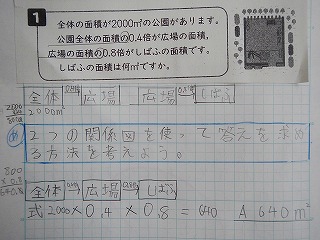 1
全体の面積が2000㎡の公園があります。
公園全体の面積の0.4倍が広場の面積,
広場の面積の0.8倍がしばふの面積です。
しばふの面積は何㎡ですか。
全体 広場 広場 しばふ
2000㎡
2000
800
め 2つの関係図を使って答えを求め
る方法を考えよう。
800
×0.8
640.0
全体 広場 しばふ
式 2000×0.4×0.8=640 A 640㎡